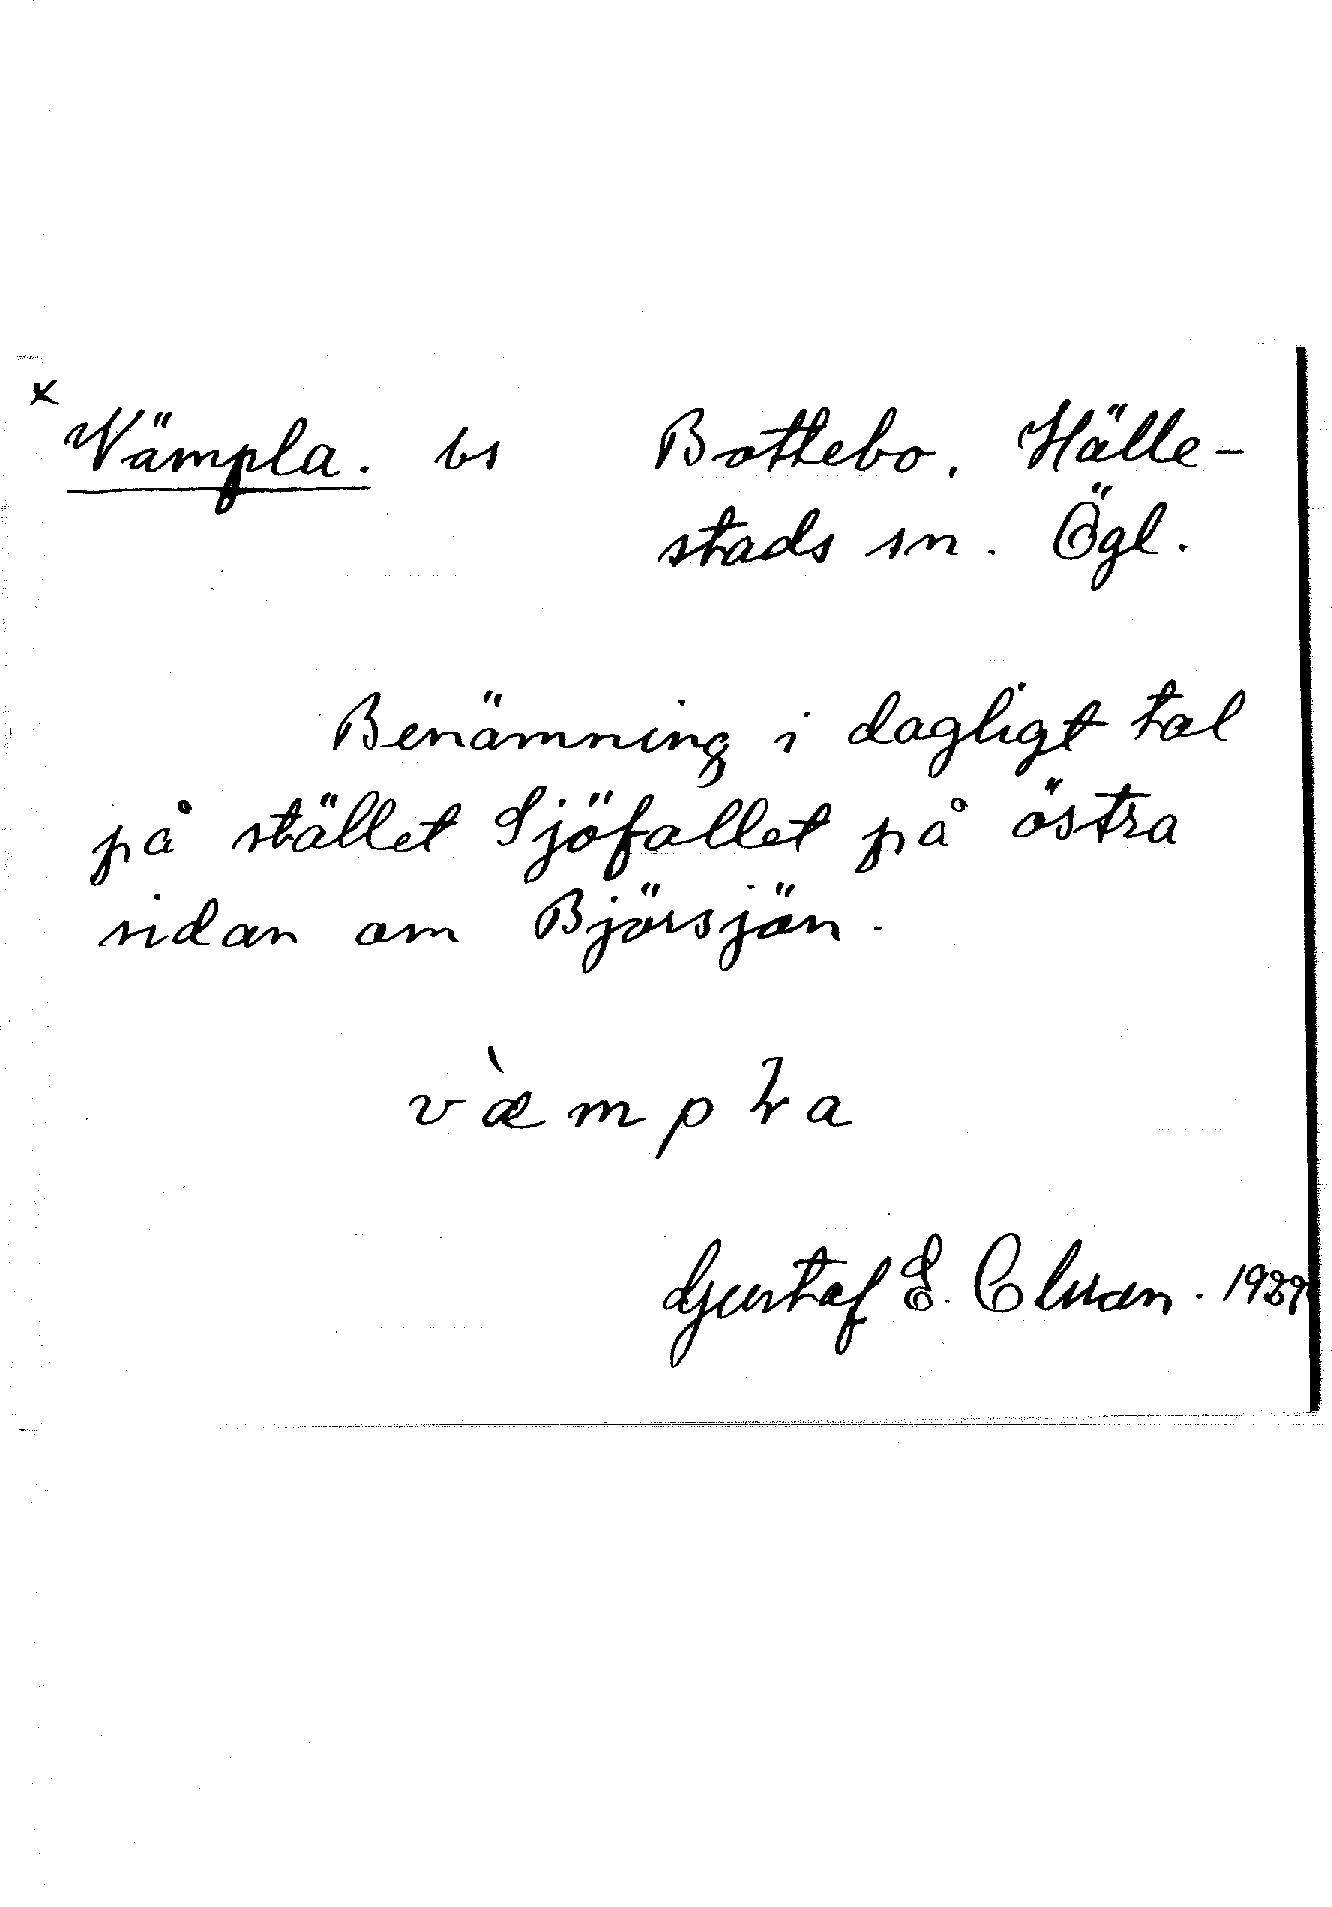 x
Vämpla. bs Bottebo, Hälle-
stads sn. Ögl.
Benämning i dagligt tal
på stället Sjöfallet på östra
sidan om Björsjön.
væ̀mpɫa
Gustaf E. Clsson. 1929